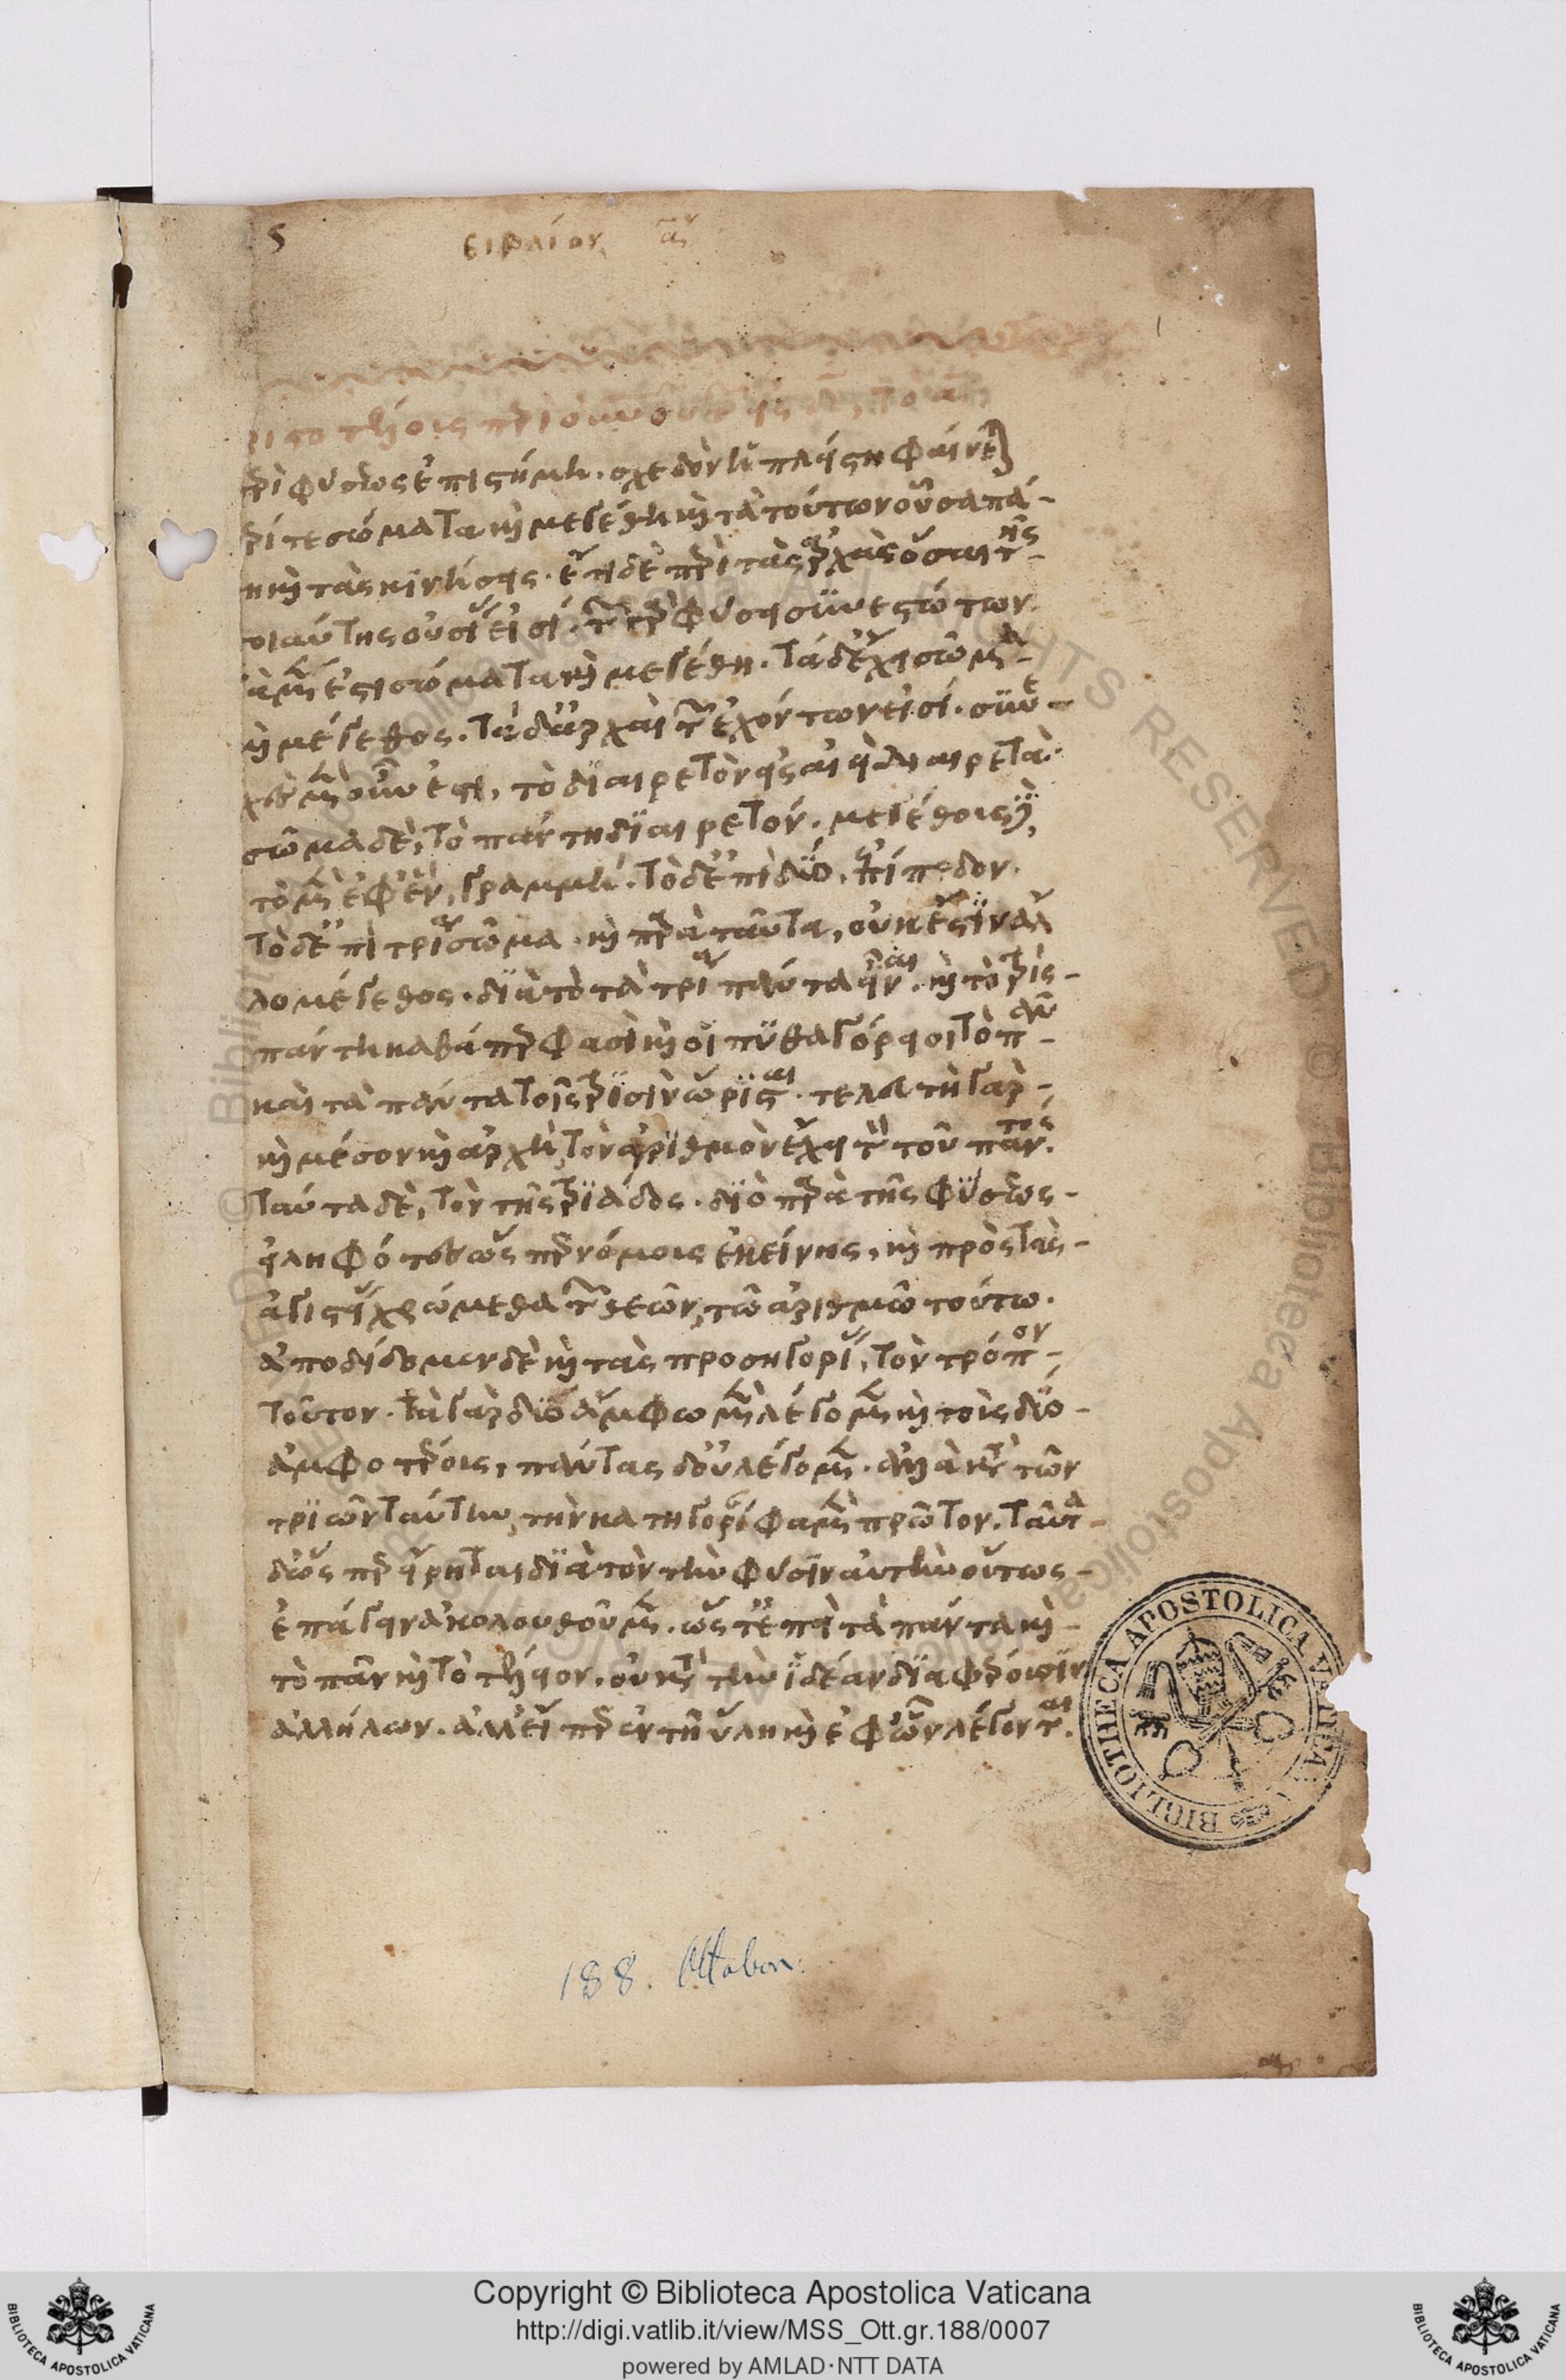 ς βιβλίον α
περὶ φύσεως ἐπιστήμη. σχεδὸν ἡ πλείστη φαίνεται
περί τε σώματα καὶ μεγέθη καὶ τὰ τούτων οὖσα πά-
θη καὶ τὰς κινήσεις. ἔτι δὲ περὶ τὰς ἀρχὰς ὅσαι τῆς
τοιαύτης οὐσίας εἰσί. τῶν γὰρ φύσει συνεστώτων
τὰ μέν ἐστι σώματα καὶ μεγέθη. τὰ δ' ἔχει σῶμα
καὶ μέγεθος. τὰ δ' ἀρχαὶ τῶν ἐχόντων εἰσί. συνε-
χὲς μὲν οὖν ἐστι, τὸ διαιρετὸν εἰς ἀεὶ διαιρετά.
σῶμα δὲ, τὸ πάντη διαιρετόν. μεγέθους δὲ
τὸ μὲν ἐφ' ἓν, γραμμή. τὸ δ' ἐπὶ δύο, ἐπίπεδον.
τὸ δ' ἐπὶ τρία σῶμα. καὶ παρὰ ταῦτα, οὐκ ἔστιν ἄλ
λο μέγεθος. διὰ τὸ τὰ τρία πάντα εἶναι. καὶ τὸ τρὶς
πάντη καθάπερ φασὶ καὶ οἱ πυθαγόρειοι τὸ πᾶν
καὶ τὰ πάντα τοῖς τρισὶν ὥρισται. τελευτὴ γὰρ
καὶ μέσον καὶ ἀρχὴ, τὸν ἀριθμὸν ἔχει τὸν τοῦ παντός.
ταῦτα δὲ, τὸν τῆς τριάδος. διὸ παρὰ τῆς φύσεως
εἰληφότες ὥσπερ νόμους ἐκείνης, καὶ πρὸς τὰς
ἁγιστείας χρώμεθα τῶν θεῶν, τῷ ἀριθμῷ τούτῳ.
ἀποδίδομεν δὲ καὶ τὰς προσηγορίας, τὸν τρόπον
τοῦτον. τὰ γὰρ δύο ἄμφω μὲν λέγομεν καὶ τοὺς δύο
ἀμφοτέρους, πάντας δ' οὐ λέγομεν. ἀλλὰ κατὰ τῶν
τριῶν ταύτην, τὴν κατηγορίαν φαμὲν πρῶτον. ταῦτα
δ' ὥσπερ εἴρηται διὰ τὸ τὴν φύσιν αὐτὴν οὕτως
ἐπάγειν ἀκολουθοῦμεν. ὥστ' ἐπεὶ τὰ πάντα καὶ
τὸ πᾶν καὶ τὸ τέλειον. οὐ κατὰ τὴν ἰδέαν διαφέρουσιν
ἀλλήλων. ἀλλ' εἴπερ ἐν τῇ ὕλῃ καὶ ἐφ' ὧν λέγονται.
188. Ottobon:
BIBLIOTHECA APOSTOLICA VATICANA
Copyright © Biblioteca Apostolica Vaticana
http://digi.vatlib.it/view/MSS_Ott.gr.188/0007
powered by AMLAD·NTT DATA